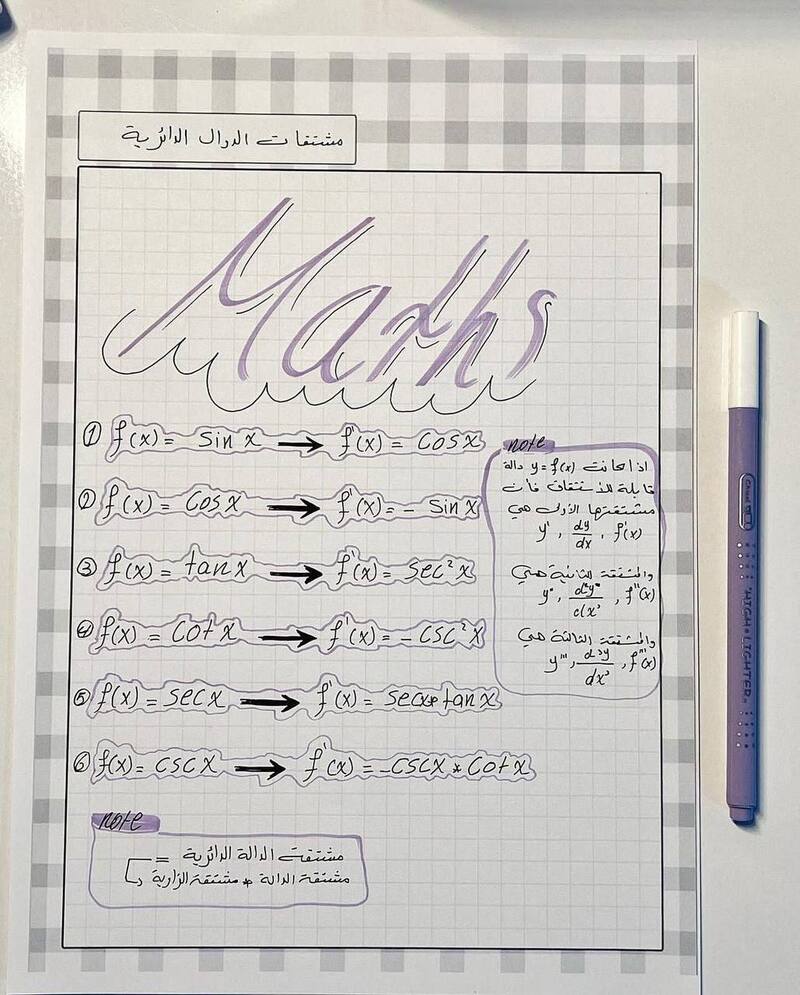 مشتقات الدوال الدائرية
Maths
① f(x) = sin x → f'(x) = cos x
② f(x) = cos x → f'(x) = - sin x
③ f(x) = tan x → f'(x) = sec² x
④ f(x) = cot x → f'(x) = - csc² x
⑤ f(x) = sec x → f'(x) = secx * tan x
⑥ f(x) = csc x → f'(x) = -cscx * cot x
note
اذا كانت y = f(x) دالة
قابلة للأشتقاق فأن
مشتقتها الأولى هي
y' , dy/dx , f'(x)
والمشتقة الثانية هي
y" , f"(x)
والمشتقة الثالثة هي
y''' , d³y/dx³ , f'''(x)
note
مشتقة الدالة الدائرية =
مشتقة الدالة * مشتقة الزاوية
HIGHLIGHTER